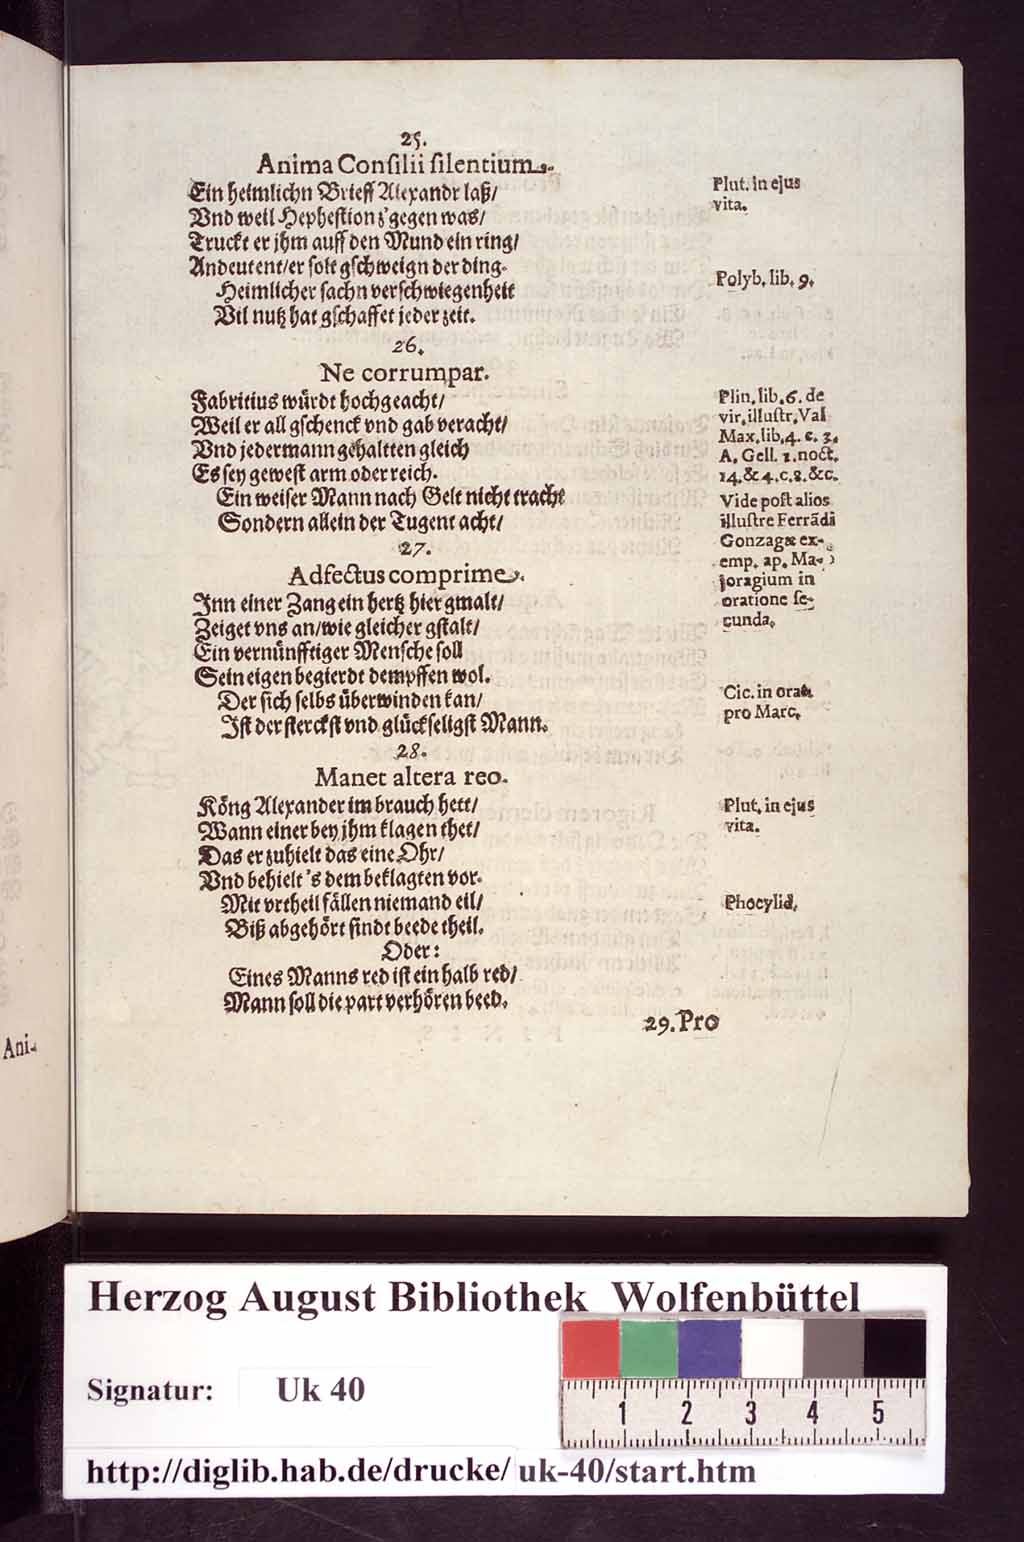 25.
Anima Consilii silentium.
Ein heimlichn Brieff Alexandr laß/
Vnd weil Hephestion z'gegen was/
Truckt er jhm auff den Mund ein ring/
Andeutent/er solt gschweign der ding.
Heimlicher sachn verschwiegenheit
Vil nutz hat gschaffet jeder zeit.
Plut. in ejus
vita.
Polyb. lib. 9.
26.
Ne corrumpar.
Fabritius würdt hochgeacht/
Weil er all gschenck vnd gab veracht/
Vnd jedermann gehaltten gleich
Es sey gewest arm oder reich.
Ein weiser Mann nach Gelt nicht tracht
Sondern allein der Tugent acht/
Plin. lib. 6. de
vir. illustr. Val
Max. lib. 4. c. 3.
A. Gell. 1. noct.
14. & 4. c. 8. &c.
Vide post alios
illustre Ferrādi
Gonzagæ ex-
emp. ap. Ma-
joragium in
oratione se-
cunda.
27.
Adfectus comprime.
Inn einer Zang ein hertz hier gmalt/
Zeiget vns an/wie gleicher gstalt/
Ein vernünfftiger Mensche soll
Sein eigen begierdt dempffen wol.
Der sich selbs überwinden kan/
Ist der sterckst vnd glückseligst Mann.
Cic. in orat.
pro Marc.
28.
Manet altera reo.
Köng Alexander im brauch hett/
Wann einer bey jhm klagen thet/
Das er zuhielt das eine Ohr/
Vnd behielt's dem beklagten vor.
Mit vrtheil fällen niemand eil/
Biß abgehört sindt beede theil.
Oder:
Eines Manns red ist ein halb red/
Mann soll die part verhören beed.
Plut. in ejus
vita.
Phocylid.
29. Pro
Ani-
Herzog August Bibliothek Wolfenbüttel
Signatur: Uk 40
1 2 3 4 5
http://diglib.hab.de/drucke/ uk-40/start.htm